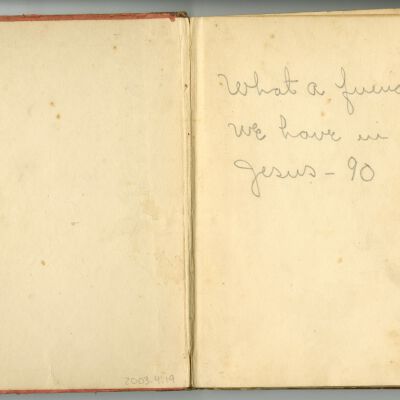 What a friend
We have in
Jesus - 90
2003.4.19